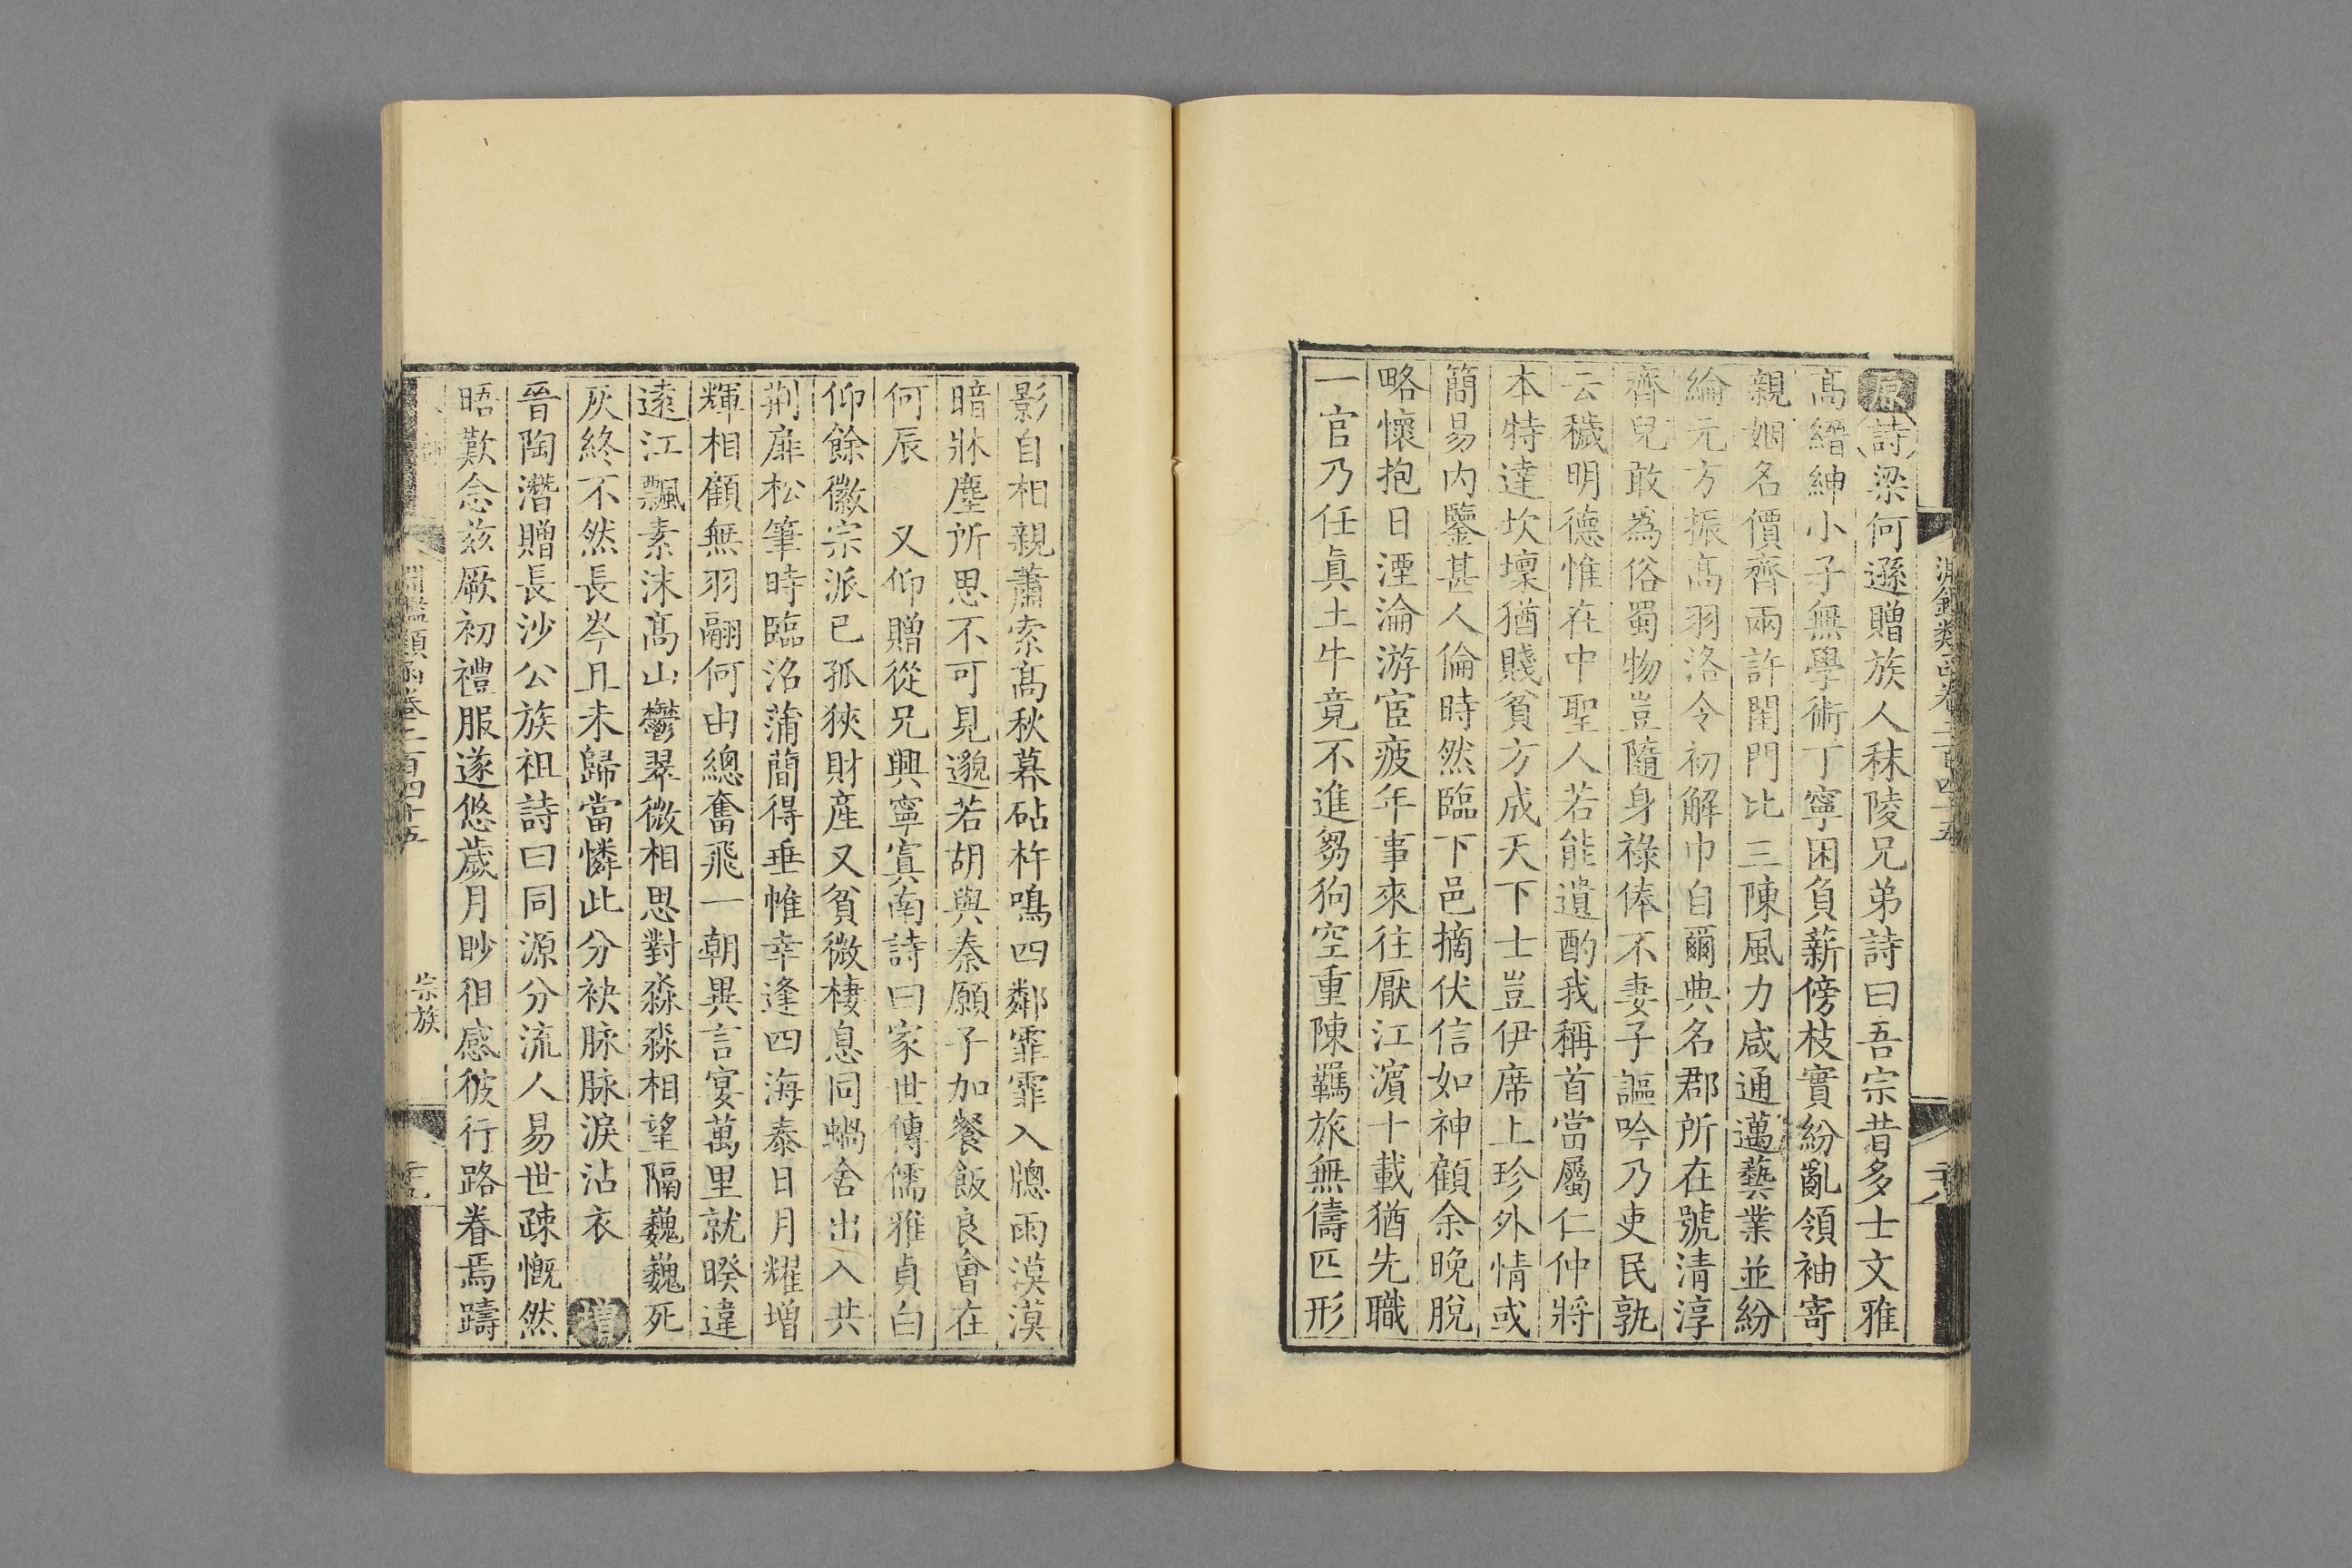 淵鑑類函卷二百四十五
原詩梁何遜贈族人秣陵兄弟詩曰吾宗昔多士文雅
高縉紳小子無學術丁寧困負薪傍枝實紛亂領袖寄
親姻名價齊兩許閨門比三陳風力咸通邁藝業並紛
綸元方振高羽洛令初解巾自爾典名郡所在號清淳
齊兒敢為俗蜀物豈隨身祿俸不妻子謳吟乃吏民孰
云穢明德惟在中聖人若能遺酌我稱首當屬仁仲將
本特達坎壈猶賤貧方成天下士豈伊席上珍外情或
簡易內鑒甚人倫時然臨下邑摘伏信如神顧余晚脫
略懷抱日湮淪游宦疲年事來往厭江濵十載猶先職
一官乃任真土牛竟不進芻狗空重陳羈旅無儔匹形
影自相親蕭索高秋暮砧杵鳴四鄰霏霏入牎雨漠漠
暗牀塵所思不可見邈若胡與秦願子加餐飯良會在
何辰　又仰贈從兄興寧寘南詩曰家世傳儒雅貞白
仰餘徽宗派已孤狹財產又貧微棲息同蝸舍出入共
荆扉松筆時臨沼蒲蕳得垂帷幸逢四海泰日月耀增
輝相顧無羽翮何由總奮飛一朝異言宴萬里就暌違
遠江飄素沫高山鬱翠微相思對淼淼相望隔巍巍死
灰終不然長岑且未歸當憐此分袂脉脉淚沾衣　增
晉陶潛贈長沙公族祖詩曰同源分流人易世疎慨然
晤歎念茲厥初禮服遂悠歲月眇徂感彼行路眷焉躊
淵鑑類函卷二百四十五　宗族